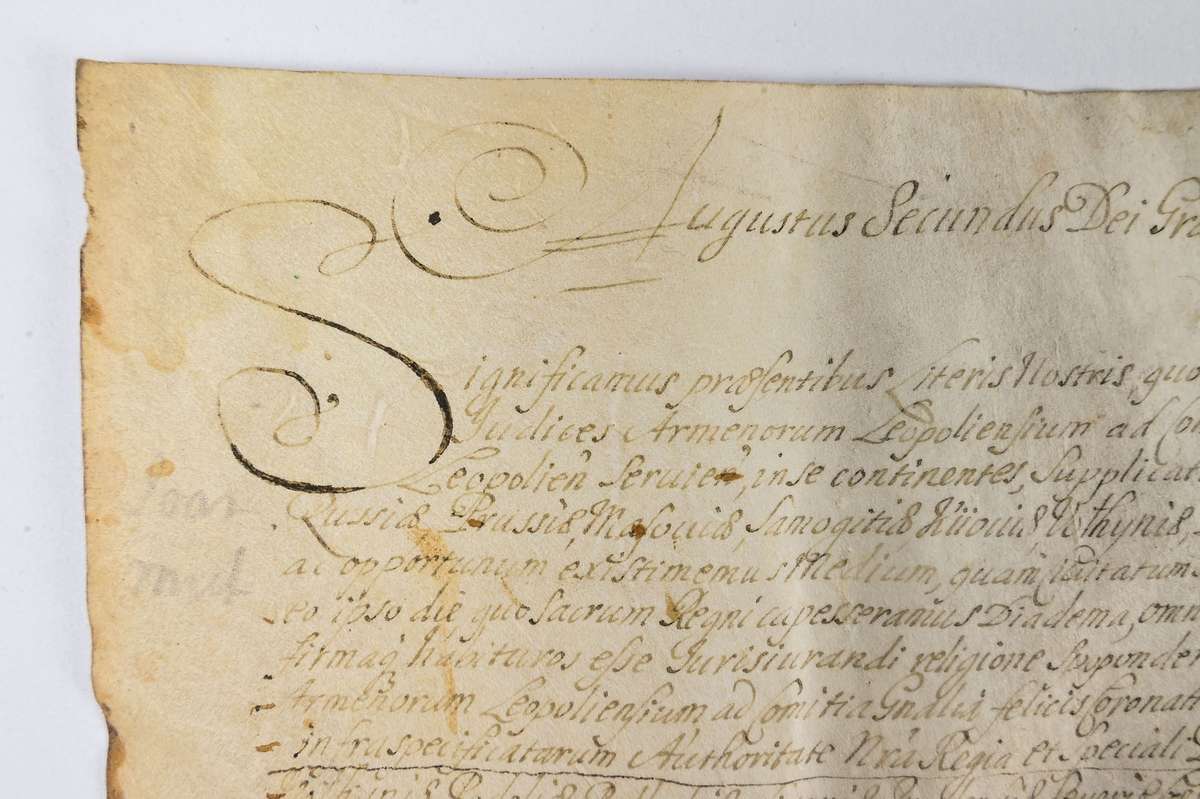 Augustus Secundus Dei Gra
Significamus præsentibus Literis Nostris, quo
Judices Armenorum Leopoliensium ad Co
Leopolien Servien, in se continentes, Supplicat
Russiæ Prussiæ, Masoviæ, Samogitiæ Kijoviæ,
ac opportunum existimemus Medium, quam
eo ipso die quo Sacrum Regni capesseramus Diadema, omn
firmaq habituros esse Jurisiurandi religione Sponder
Armenorum Leopoliensium ad Comitia Gnalia felicis Coronat
infraspecificatarum Authoritate Nrā Regia et Speciali